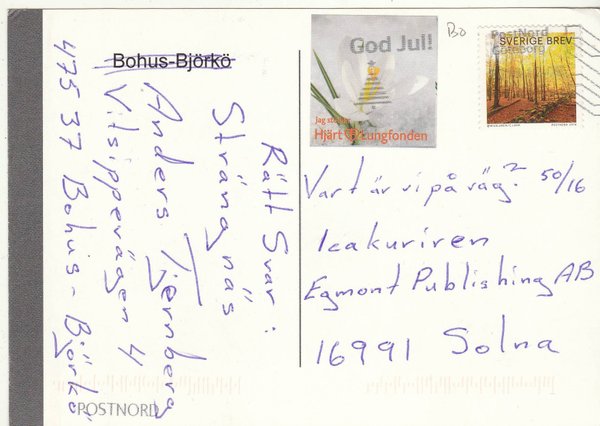 Bohus-Björkö
Rätt Svar:
Strängnäs
Anders Tjernberg
Vitsippevägen 4
475 37 Bohus-Björkö
POSTNORD
God Jul!
Jag stöder
Hjärt Lungfonden
Bo
PostNord
SVERIGE BREV
Göteborg
Vart är vi på väg? 50/16
Icakuriren
Egmont Publishing AB
16991 Solna